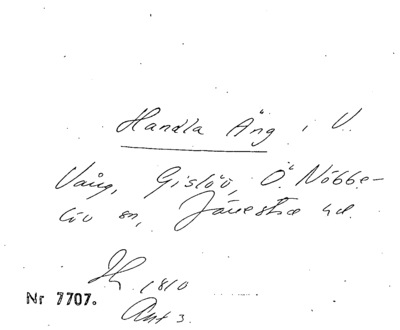 Handla Äng i V.
Vång, Gislöv, Ö. Nöbbe-
löv sn, Järrestad hd.
1810
Nr 7707.
Ant 3.